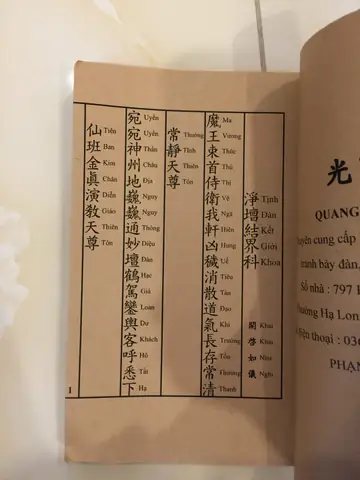 淨壇結界科 開啓如儀
Tịnh Đàn Kết Giới Khoa Khai Khải Như Nghi
魔王束首侍衛我軒凶穢消散道氣長存常清
Ma Vương Thúc Thủ Thị Vệ Ngã Hiên Hung Uế Tiêu Tán Đạo Khí Trường Tồn Thường Thanh
常靜天尊
Thường Tĩnh Thiên Tôn
宛宛神州地巍巍通妙壇鶴駕鑾輿客呼悉下
Uyển Uyển Thần Châu Địa Nguy Nguy Thông Diệu Đàn Hạc Giá Loan Dư Khách Hô Tất Hạ
仙班金眞演教天尊
Tiên Ban Kim Chân Diễn Giáo Thiên Tôn
1
光
QUANG
cung cấp
tranh bày đàn,
Số nhà : 797
Hạ Lon
điện thoại : 03